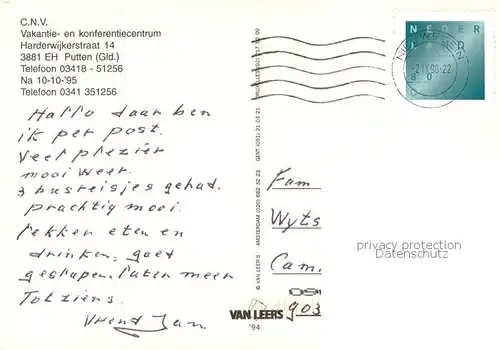 C.N.V.
Vakantie- en konferentiecentrum
Harderwijkerstraat 14
3881 EH Putten (Gld.)
Telefoon 03418 - 51256
Na 10-10-'95
Telefoon 0341 351256
Hallo daar ben
ik per post.
Veel plezier
mooi weer.
3 busreisjes gehad.
prachtig mooi.
lekker eten en
drinken, goed
geslapen. Later meer
Tot ziens.
Vriend Jan
GENT (091) 21 03 21
AMSTERDAM (020) 682 32 23
© VAN LEER'S
VAN LEERS
'94
NEDER
LAND
Fam
Wyts
Cam.
903
privacy protection
Datenschutz